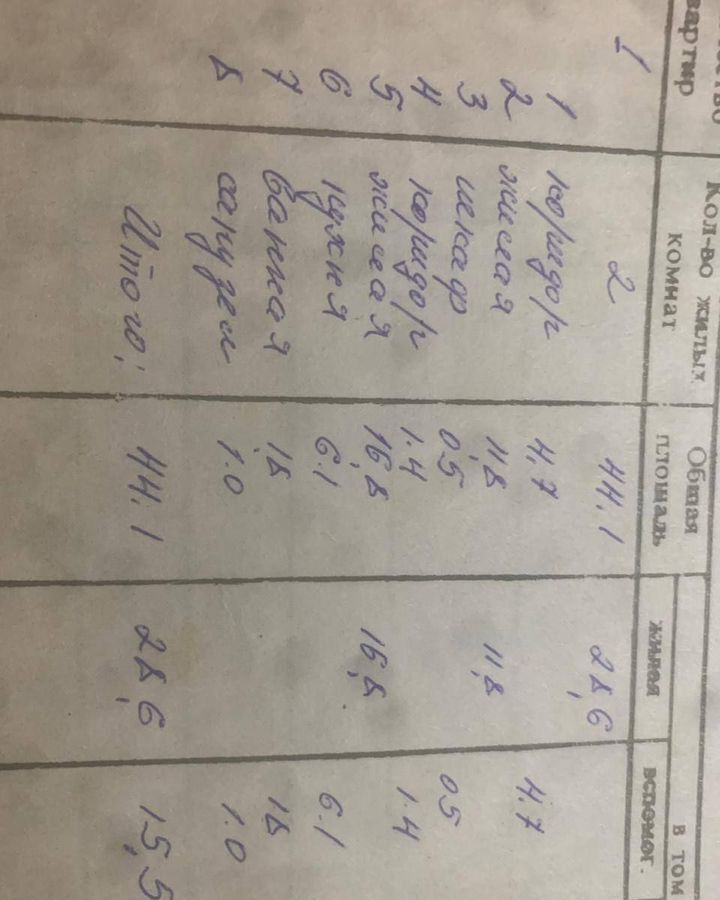 квартир Кол-во жилых комнат Общая площадь в том
жилая вспомог.
1 2 44.1 28,6
1 коридор 4.7 4.7
2 жилая 11,8 11,8
3 шкаф 0.5 0.5
4 коридор 1.4 1.4
5 жилая 16,8 16,8
6 кухня 6.1 6.1
7 ванная 1.8 1.8
8 санузел 1.0 1.0
Итого: 44.1 28,6 15,5